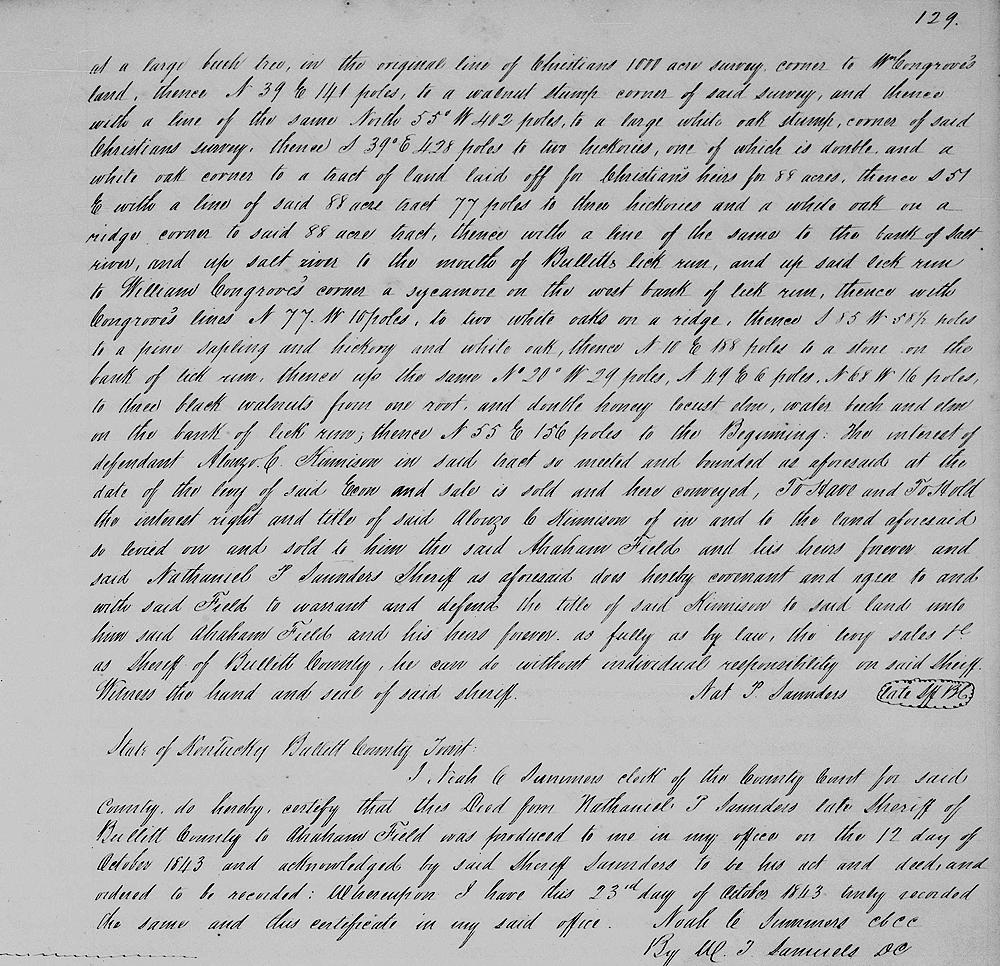 129.
at a large beech tree, in the original line of Christians 1000 acre survey. corner to Wm Congrove's
land, thence N 39 E 141 poles, to a walnut stump corner of said survey, and thence
with a line of the same North 55° W 482 poles, to a large white oak stump, corner of said
Christians survey. thence S 39° E 428 poles to two hickories, one of which is double. and a
white oak corner to a tract of land laid off for Christian's heirs for 88 acres, thence S 51
E with a line of said 88 acre tract 77 poles to three hickories and a white oak on a
ridge corner to said 88 acre tract, thence with a line of the same to the bank of Salt
river, and up salt river to the mouth of Bullitts lick run, and up said lick run
to William Congrove's corner a sycamore on the west bank of lick run, thence with
Congrove's lines N 77. W 10 poles, to two white oaks on a ridge, thence S 85 W 58½ poles
to a pine sapling and hickory and white oak, thence N 10 E 188 poles to a stone on the
bank of lick run. thence up the same N° 20° W 29 poles, N 49 E 6 poles. N 68 W 16 poles,
to three black walnuts from one root. and double honey locust elm, water beech and elm
on the bank of lick run; thence N 55 E 156 poles to the Beginning: The interest of
defendant Alonzo C. Kinnison in said tract so meeted and bounded as aforesaid at the
date of the levy of said Econ and sale is sold and here conveyed, To Have and To Hold
the interest right and title of said Alonzo C Kinnison of in and to the land aforesaid
so levied on and sold to him the said Abraham Field and his heirs forever and
said Nathaniel P Saunders Sheriff as aforesaid does hereby covenant and agree to and
with said Field to warrant and defend the title of said Kinnison to said land unto
him said Abraham Field and his heirs forever. as fully as by law, the levy sales &c
as Sheriff of Bullitt County, he can do without individual responsibility on said Sheriff.
Witness the hand and seal of said sheriff. Nat P. Saunders late Sff BC
State of Kentucky Bullitt County Towit:
I Noah C Summers clerk of the County Court for said
County. do hereby. certify that this Deed from Nathaniel P Saunders late Sheriff of
Bullitt County to Abraham Field was produced to me in my office on the 12 day of
October 1843 and acknowledged by said Sheriff Saunders to be his act and deed, and
ordered to be recorded: Whereupon I have this 23rd day of October 1843 truly recorded
the same and this certificate in my said office. Noah C Summers cbcc
By W. T Samuels DC